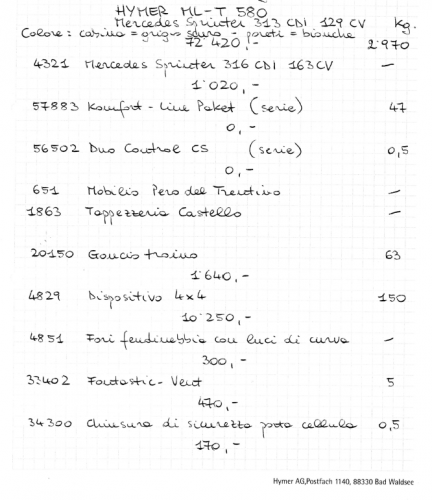 HYMER ML-T 580
Mercedes Sprinter 313 CDI 129 CV kg.
Colore: cabina = grigio scuro - pareti = bianche
72'420,- 2'970
4321 Mercedes Sprinter 316 CDI 163CV -
1'020,-
57883 Komfort-Line Paket (serie) 47
0,-
56502 Duo Control CS (serie) 0,5
0,-
651 Mobilio Pero del Trentino -
1863 Tappezzeria Castello -
20150 Gancio traino 63
1'640,-
4829 Dispositivo 4x4 150
10'250,-
4851 Fari fendinebbia con luci di curva -
300,-
33402 Fantastic-Vent 5
470,-
34300 Chiusura di sicurezza porta cellula 0,5
170,-
Hymer AG,Postfach 1140, 88330 Bad Waldsee